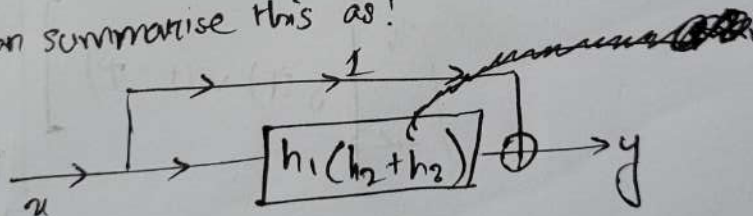 n summarise this as:
1
h₁(h₂+h₃)
y
x